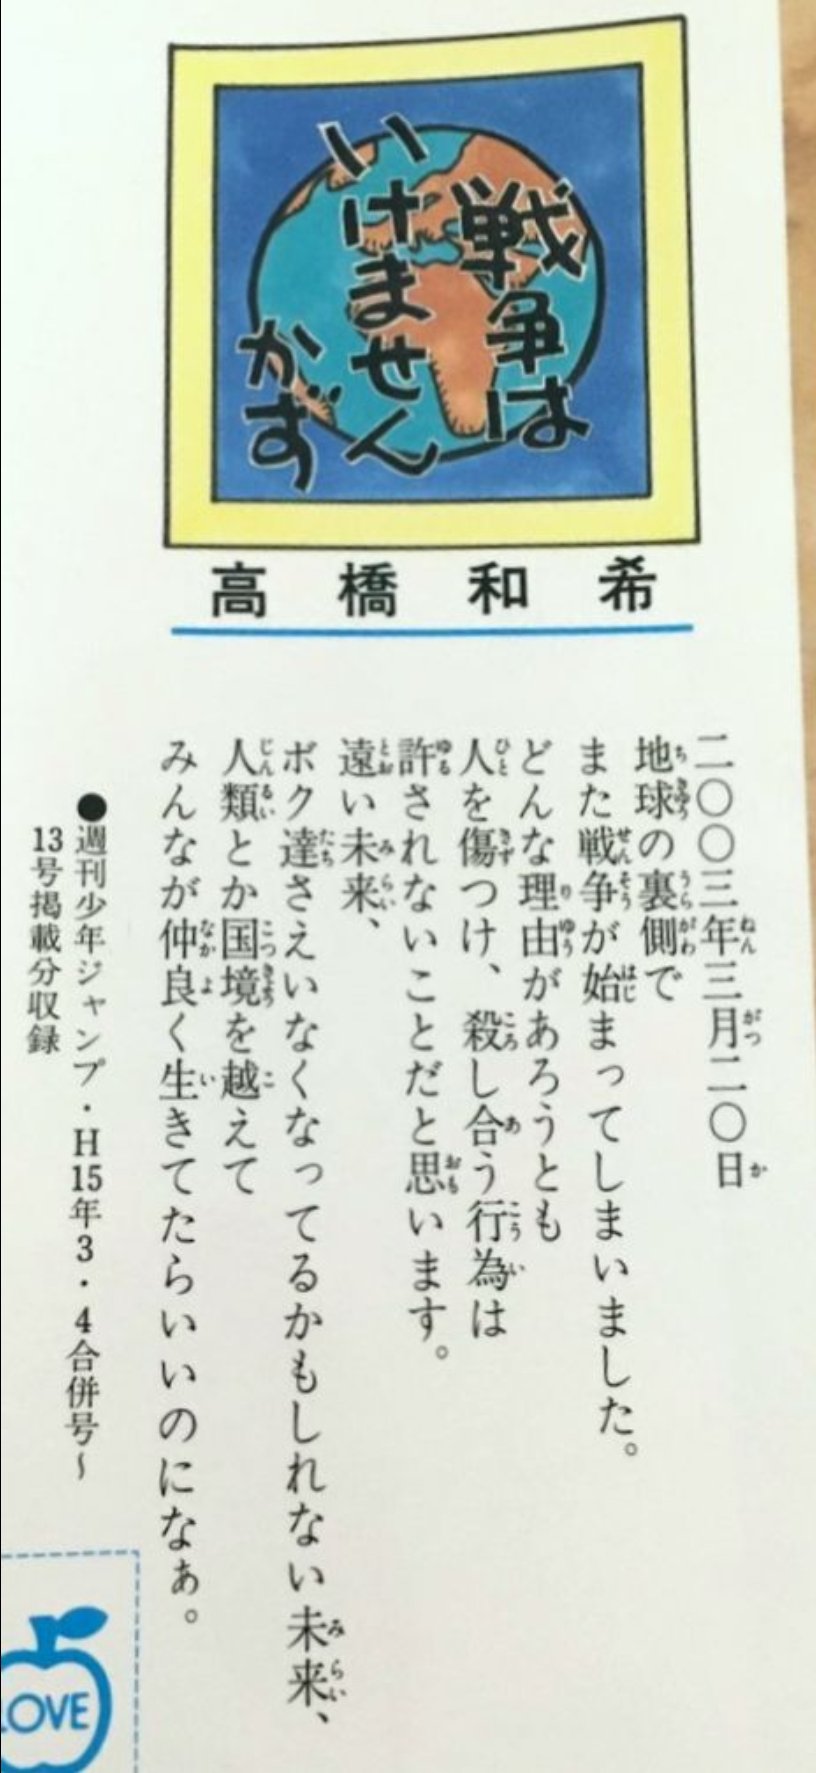 戦争は
いけません
かず
高橋和希
二〇〇三年三月二〇日
地球の裏側で
また戦争が始まってしまいました。
どんな理由があろうとも
人を傷つけ、殺し合う行為は
許されないことだと思います。
遠い未来、
ボク達さえいなくなってるかもしれない未来、
人類とか国境を越えて
みんなが仲良く生きてたらいいのになぁ。
●週刊少年ジャンプ・H15年3・4合併号~
13号掲載分収録
LOVE